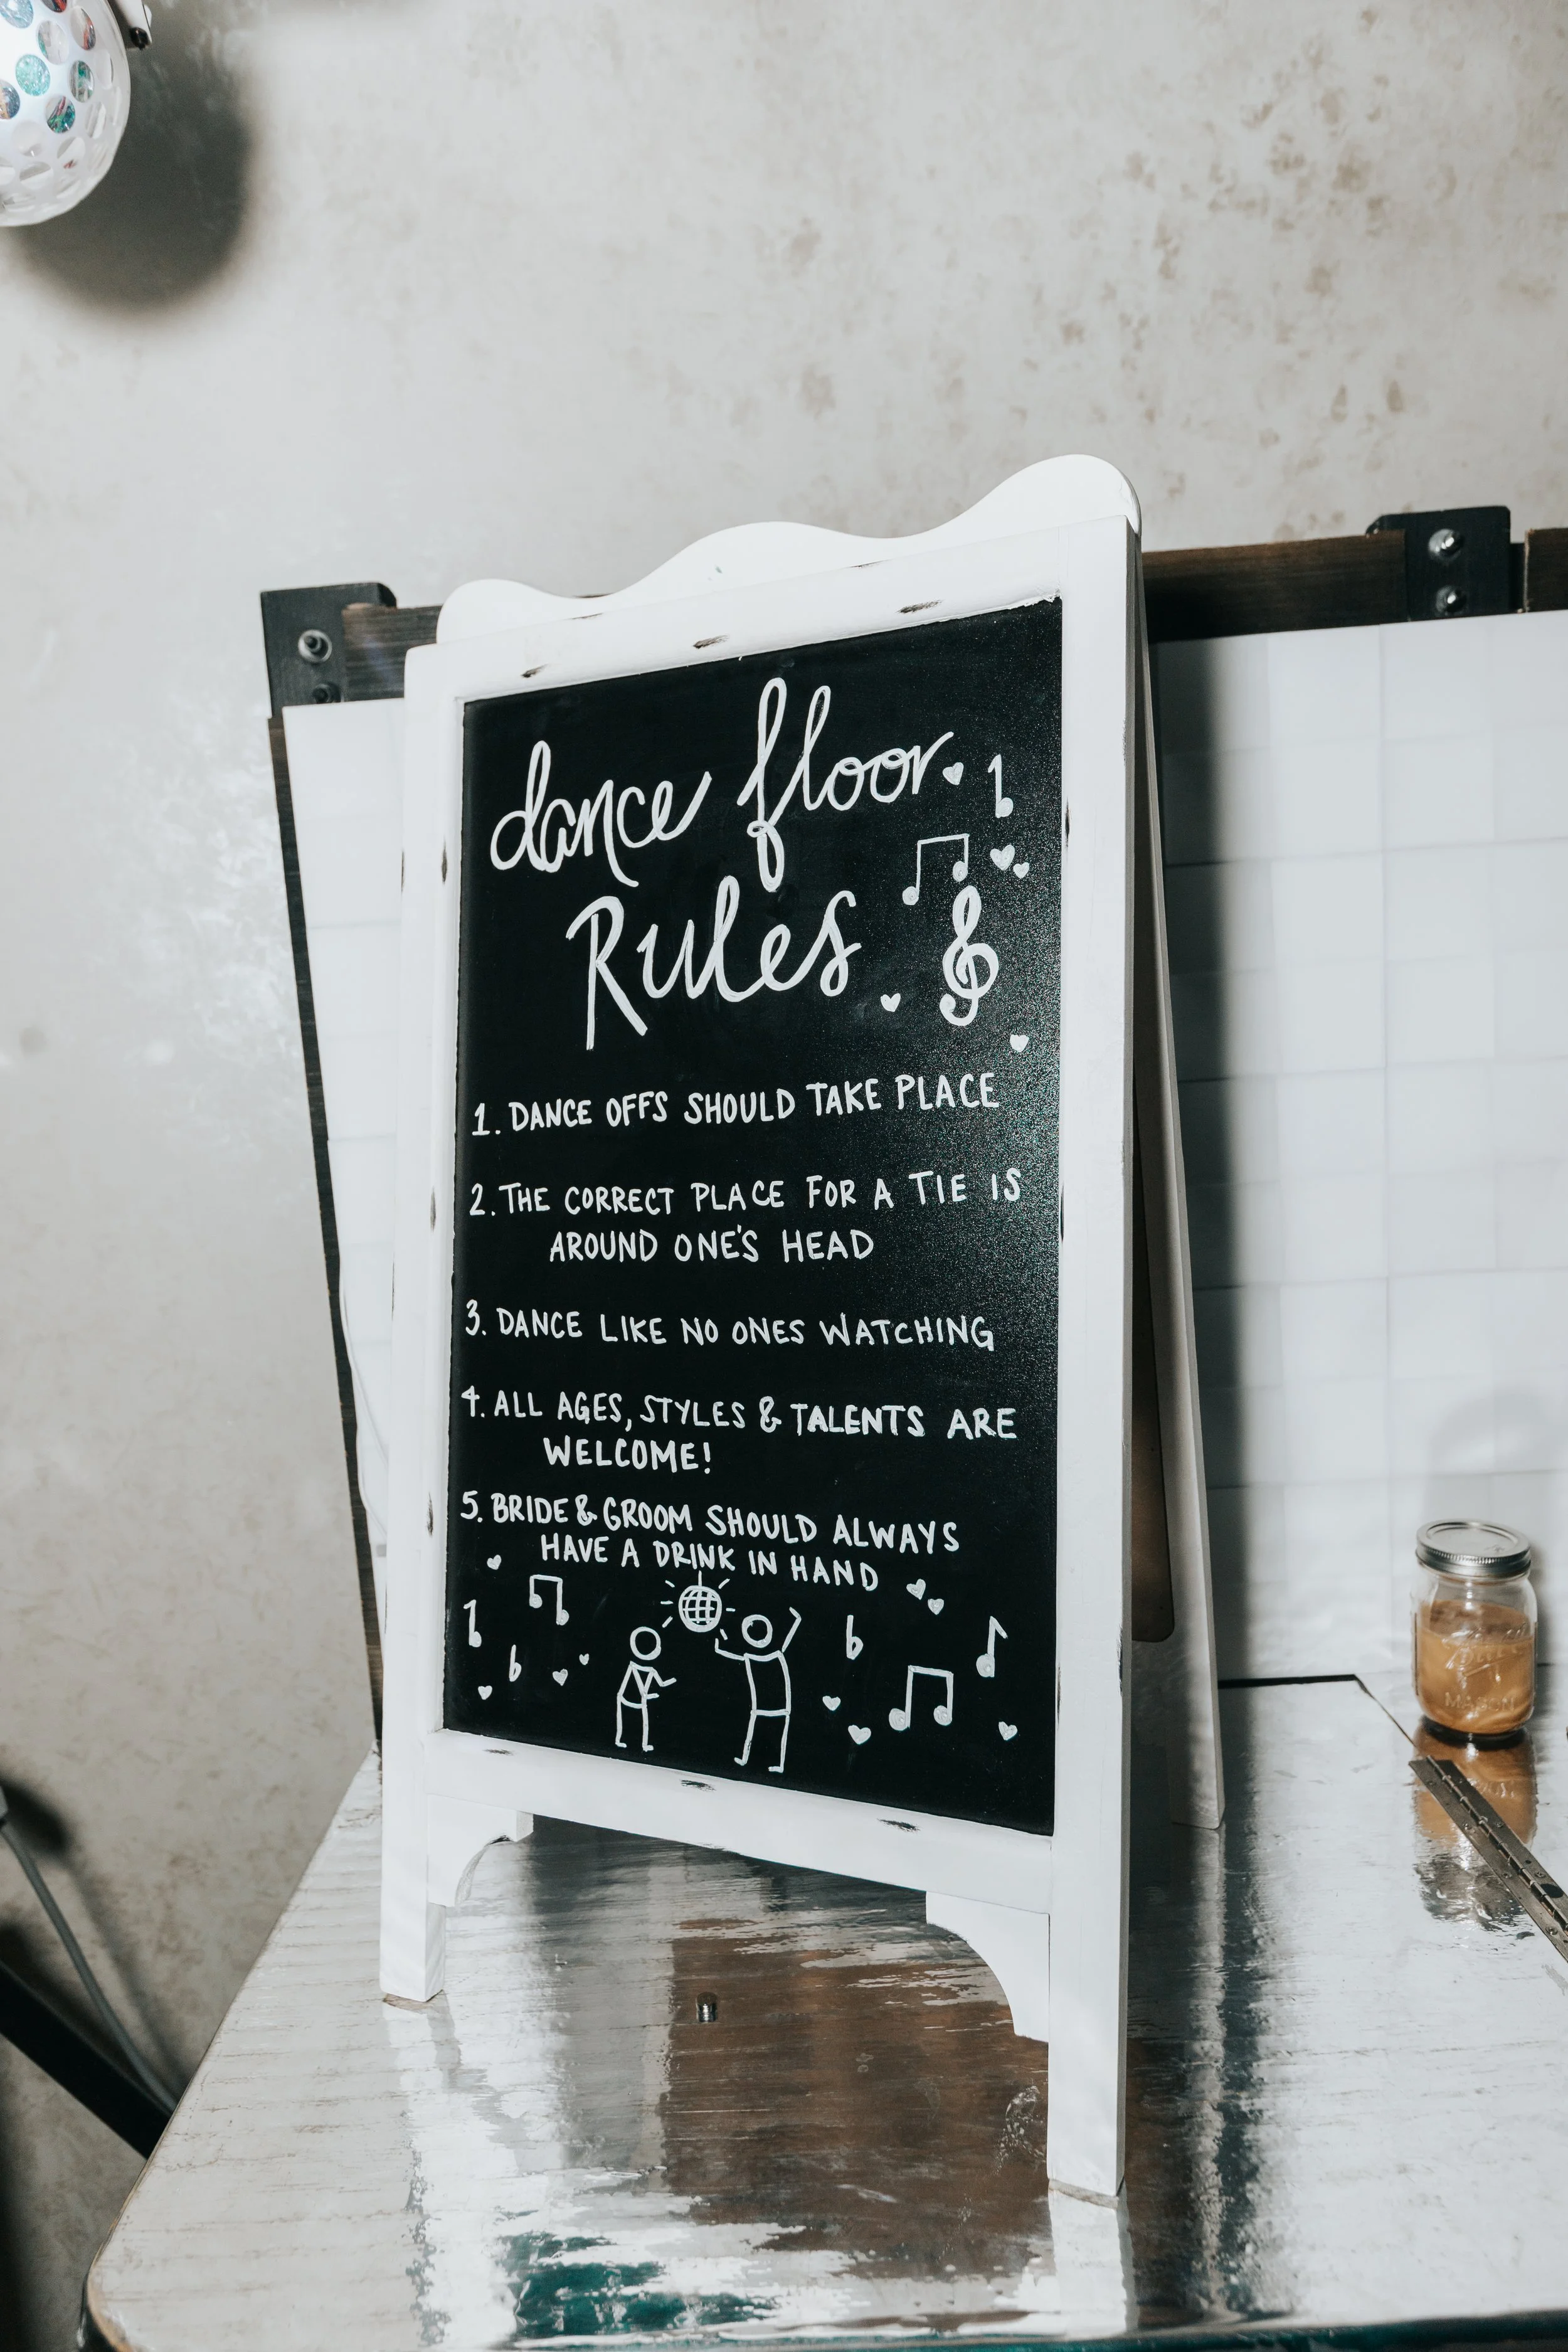 dance floor
Rules
1. DANCE OFFS SHOULD TAKE PLACE
2. THE CORRECT PLACE FOR A TIE IS
AROUND ONE'S HEAD
3. DANCE LIKE NO ONES WATCHING
4. ALL AGES, STYLES & TALENTS ARE
WELCOME!
5. BRIDE & GROOM SHOULD ALWAYS
HAVE A DRINK IN HAND
MASON